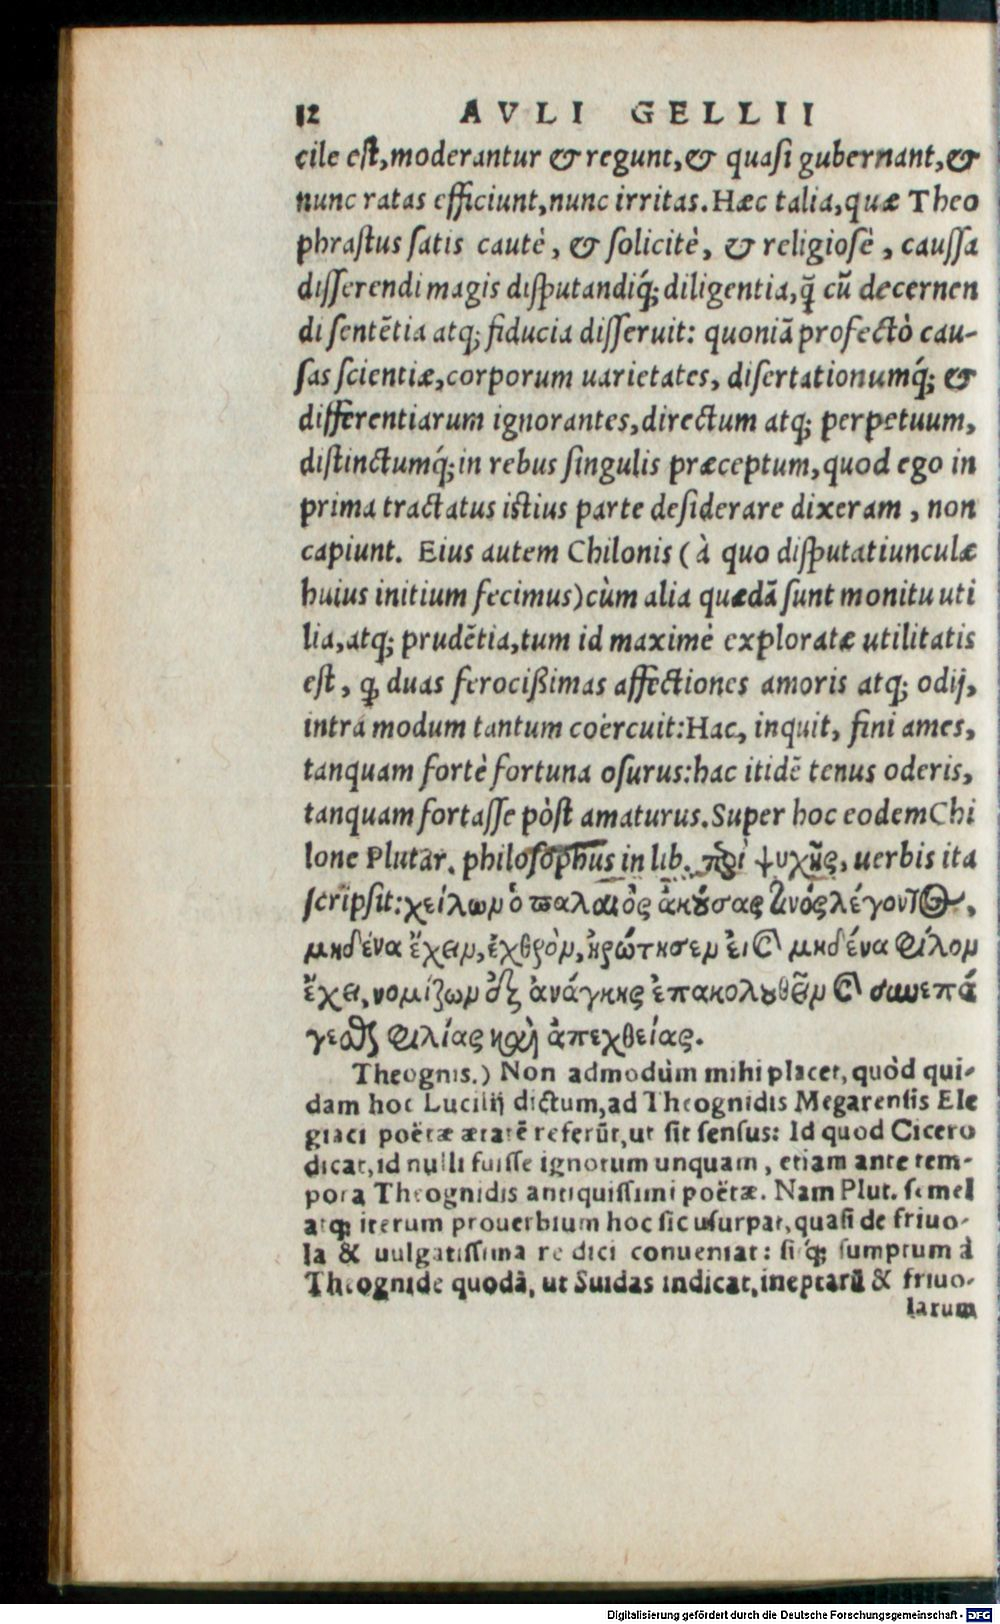 12 AVLI GELLII
cile est, moderantur & regunt, & quasi gubernant, &
nunc ratas efficiunt, nunc irritas. Hæc talia, quæ Theo
phrastus satis cautè, & solicitè, & religiosè, caussa
disserendi magis disputandiq́; diligentia, q̃ cũ decernen
di sentẽtia atq; fiducia disseruit: quoniã profectò cau-
sas scientiæ, corporum uarietates, disertationumq́; &
differentiarum ignorantes, directum atq; perpetuum,
distinctumq́; in rebus singulis præceptum, quod ego in
prima tractatus istius parte desiderare dixeram, non
capiunt. Eius autem Chilonis (à quo disputatiunculæ
huius initium fecimus) cùm alia quædã sunt monitu uti
lia, atq; prudẽtia, tum id maximè exploratæ utilitatis
est, ꝙ duas ferocißimas affectiones amoris atq; odij,
intra modum tantum coërcuit: Hac, inquit, fini ames,
tanquam fortè fortuna osurus: hac itidẽ tenus oderis,
tanquam fortasse pòst amaturus. Super hoc eodem Chi
lone Plutar. philosophus in lib. περὶ ψυχῆς, uerbis ita
scripsit: χείλωμ ὁ παλαιὸς ἀκούσας τινὸς λέγοντος,
μηδένα ἔχειμ, ἐχθρὸμ, ἠρώτησεμ εἰ μηδένα φίλομ
ἔχει, νομίζωμ ἐξ ἀνάγκης ἐπακολουθεῖμ συνεπά
γεσθαι φιλίας καὶ ἀπεχθείας.
Theognis.) Non admodùm mihi placet, quòd qui-
dam hoc Lucilij dictum, ad Theognidis Megarensis Ele
giaci poëtæ ætatẽ referũt, ut sit sensus: Id quod Cicero
dicat, id nulli fuisse ignotum unquam, etiam ante tem-
pora Theognidis antiquissimi poëtæ. Nam Plut. semel
atq; iterum prouerbium hoc sic usurpat, quasi de friuo-
la & uulgatissima re dici conueniat: siq́; sumptum à
Theognide quodã, ut Suidas indicat, ineptarũ & friuo-
larum
Digitalisierung gefördert durch die Deutsche Forschungsgemeinschaft - DFG